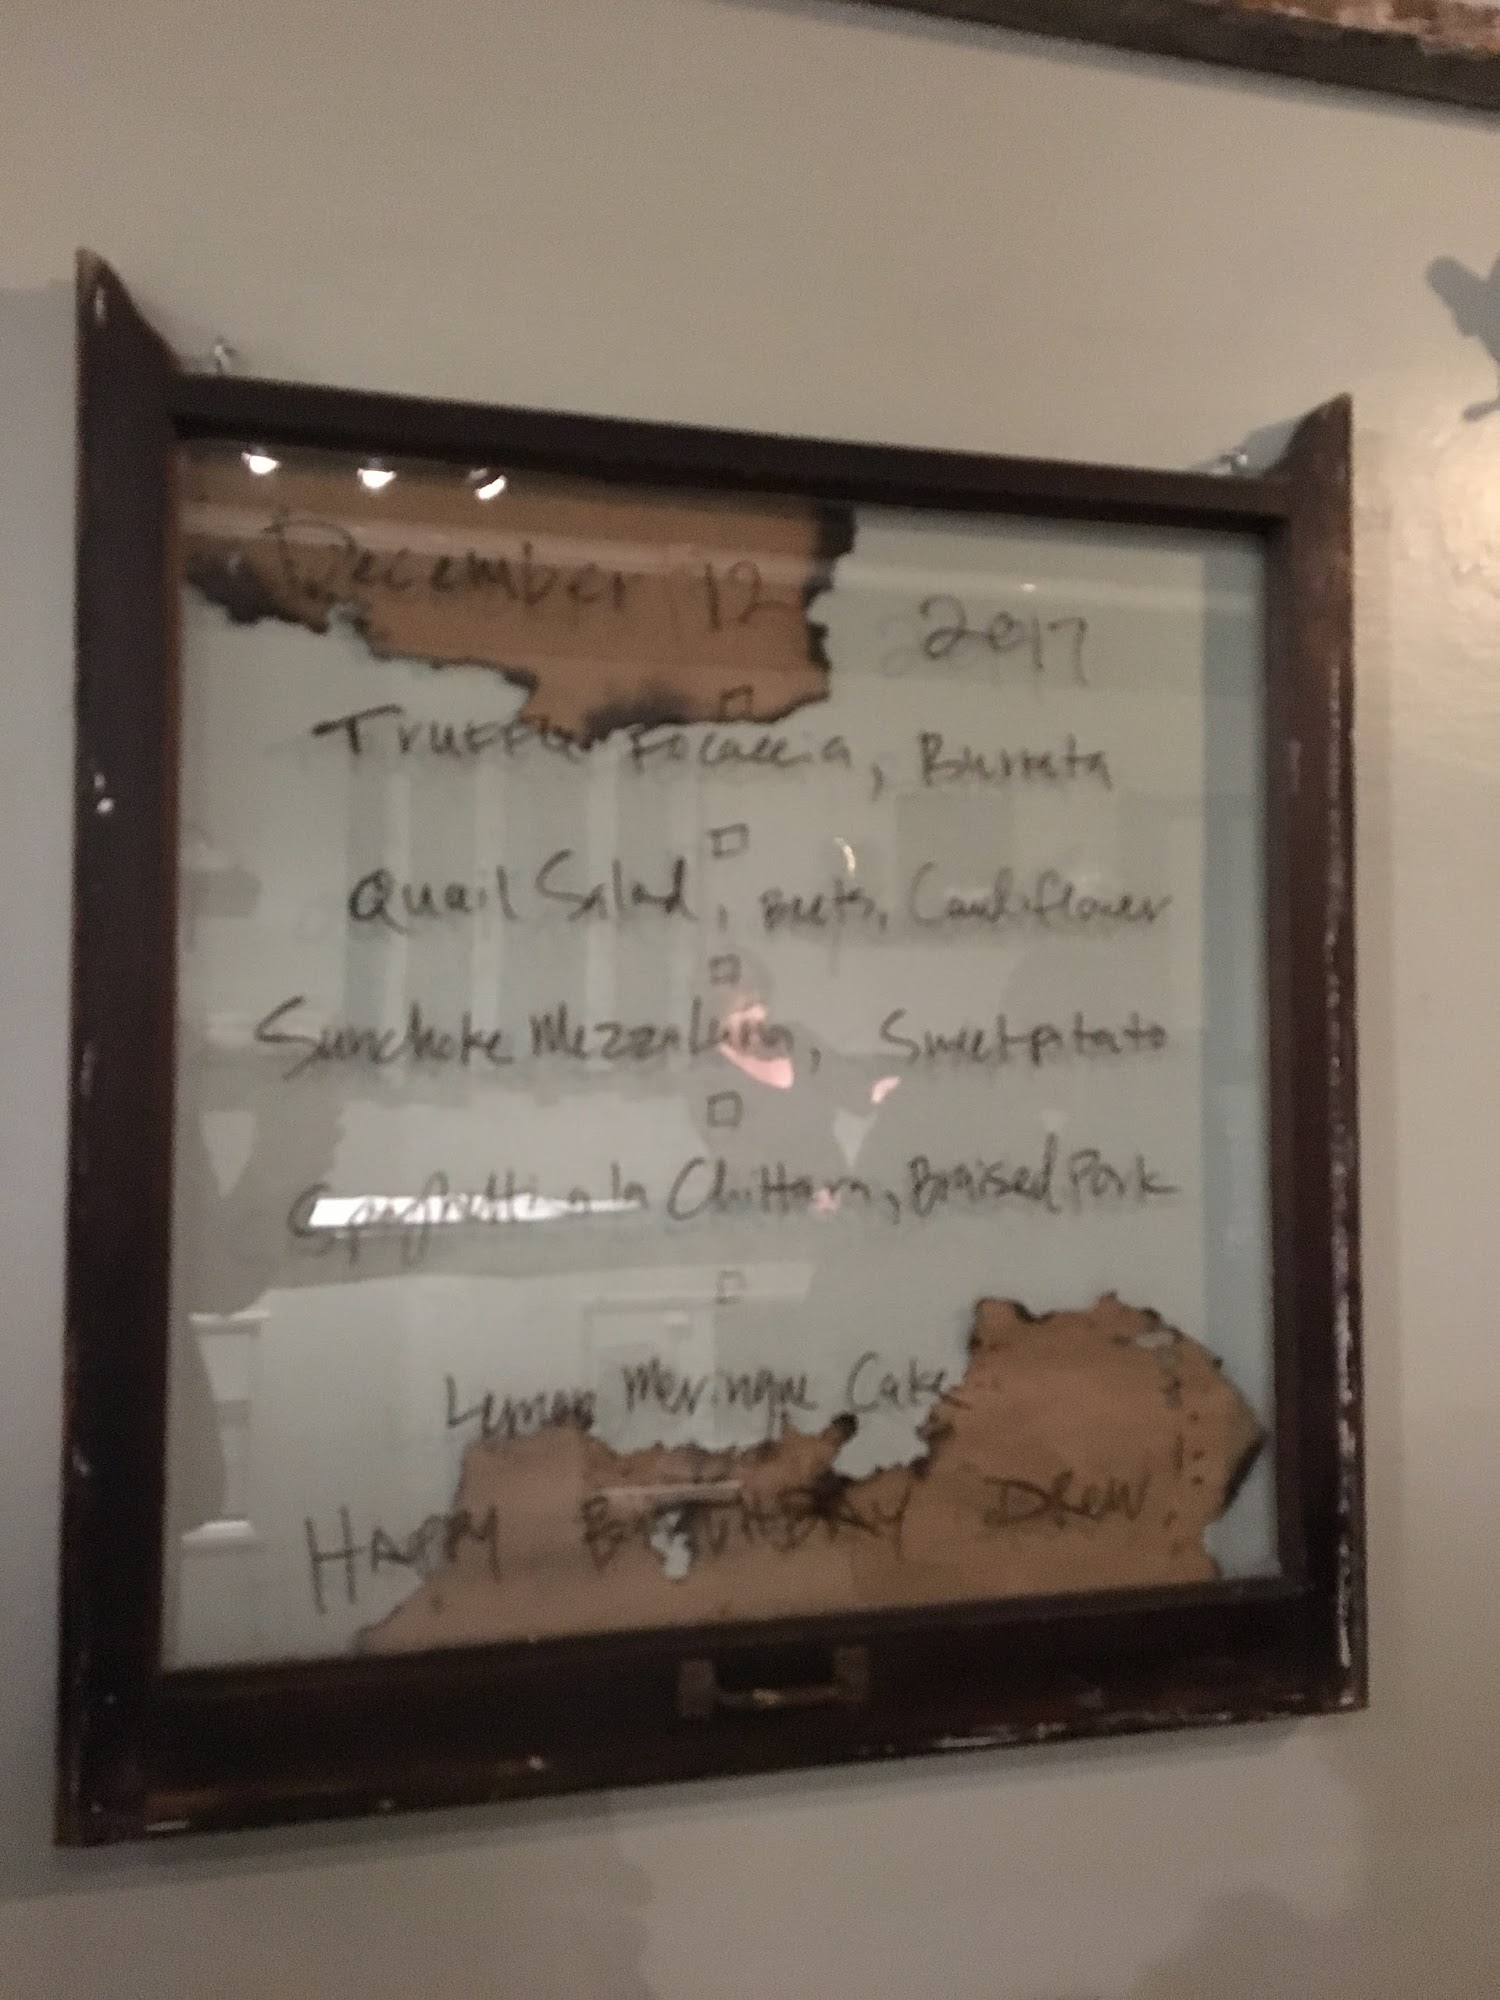 December 12 2017
Truffle Focaccia, Burrata
Quail Salad, Beets, Cauliflower
Sunchoke Mezzaluna, Sweetpotato
Spaghetti a la Chittara, Braised Pork
Lemon Meringue Cake
HAPPY BIRTHDAY DREW